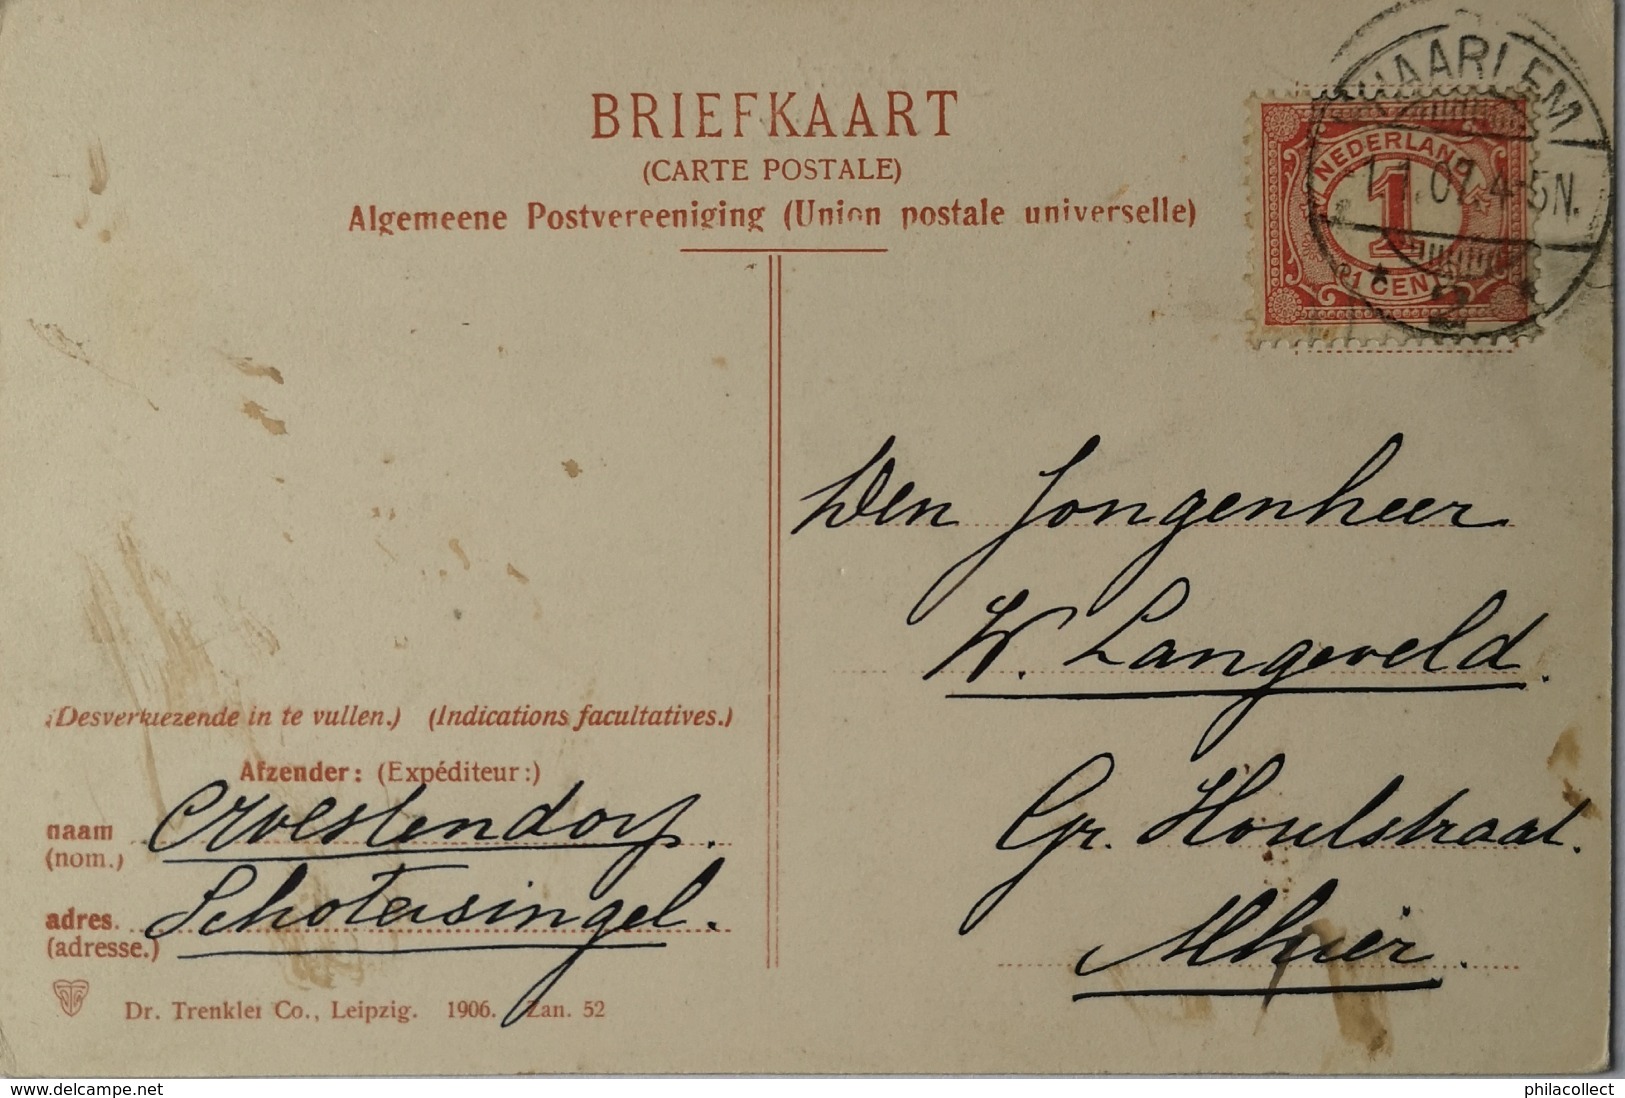 BRIEFKAART
(CARTE POSTALE)
Algemeene Postvereeniging (Union postale universelle)
HAARLEM
1.1.07.4-5N.
2
NEDERLAND
1
1 CENT
Den Jongenheer
W. Langeveld.
Gr. Houtstraat.
Alhier.
(Desverkiezende in te vullen.) (Indications facultatives.)
Afzender: (Expéditeur:)
naam
(nom.)
adres. Schotersingel.
(adresse.)
Dr. Trenkler Co., Leipzig. 1906. Zan. 52
www.delcampe.net
philacollect